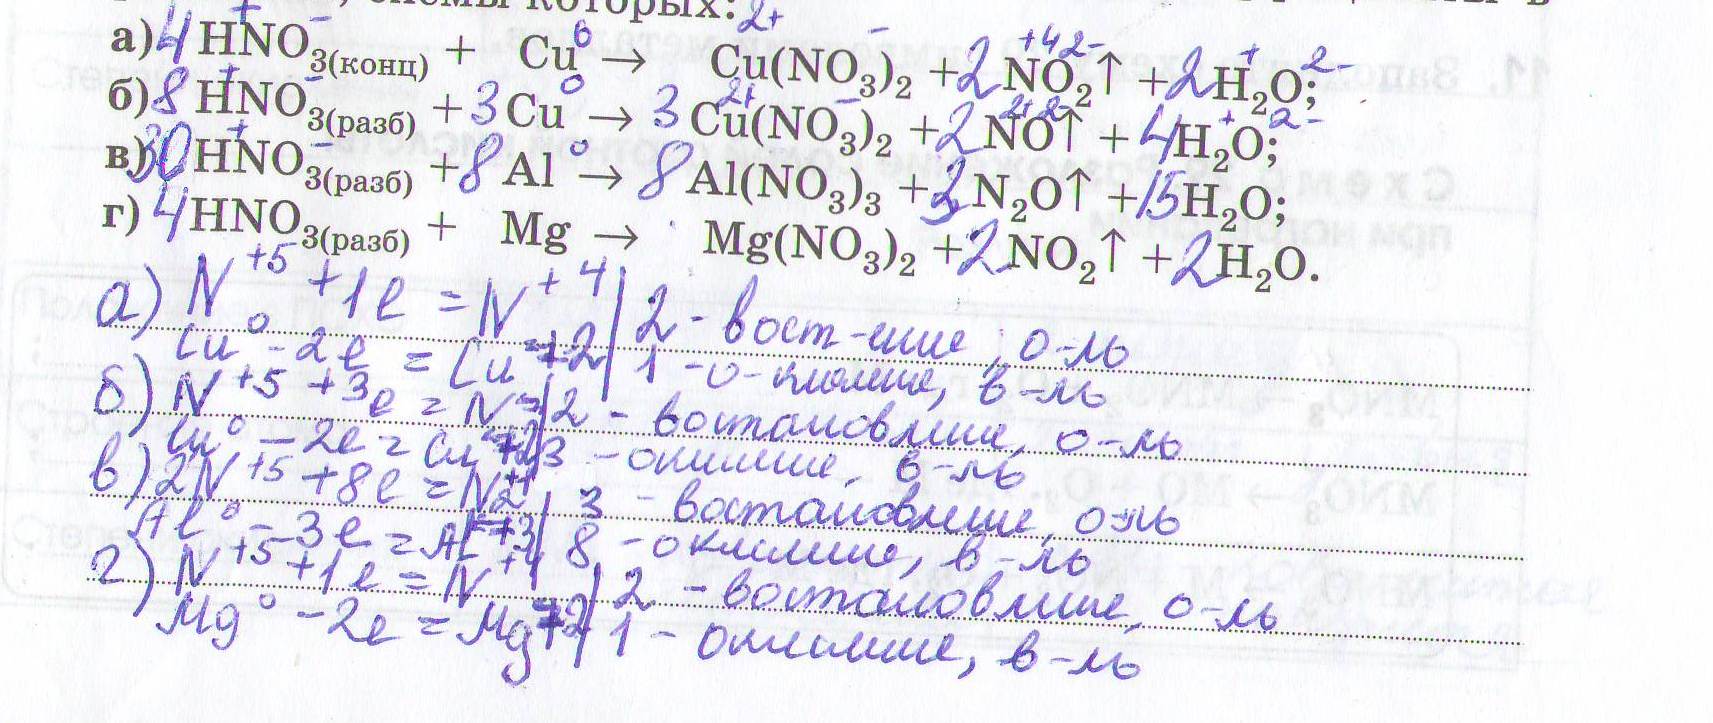 которых:
а) 4 HNO₃(конц) + Cu⁰ → Cu(NO₃)₂ + 2 NO₂↑ + 2 H₂O;
б) 8 HNO₃(разб) + 3 Cu⁰ → 3 Cu(NO₃)₂ + 2 NO↑ + 4 H₂O;
в) 30 HNO₃(разб) + 8 Al⁰ → 8 Al(NO₃)₃ + 3 N₂O↑ + 15 H₂O;
г) 4 HNO₃(разб) + Mg → Mg(NO₃)₂ + 2 NO₂↑ + 2 H₂O.
а) N⁺⁵ + 1e = N⁺⁴ | 2 - вост-ение, о-ль
Cu⁰ - 2e = Cu⁺² | 1 - о-ление, в-ль
б) N⁺⁵ + 3e = N⁺² | 2 - востановление, о-ль
Cu⁰ - 2e = Cu⁺² | 3 - окисление, в-ль
в) 2N⁺⁵ + 8e = N₂⁺¹ | 3 - востановление, о-ль
Al⁰ - 3e = Al⁺³ | 8 - окисление, в-ль
г) N⁺⁵ + 1e = N⁺⁴ | 2 - востановление, о-ль
Mg⁰ - 2e = Mg⁺² | 1 - окисление, в-ль